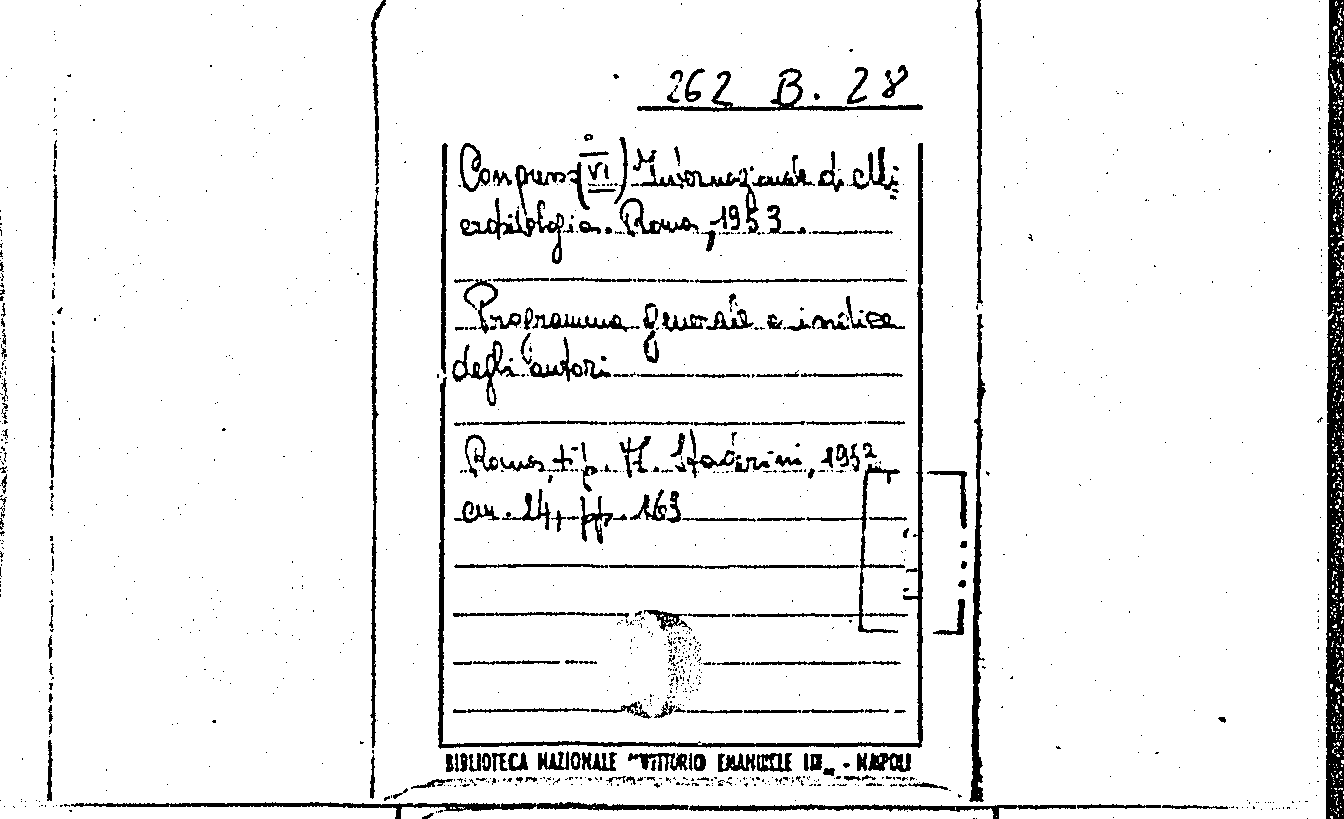 262 B. 28
Congresso (VI°) Internazionale di Mi=
crobiologia. Roma, 1953.
Programma generale e indice
degli autori
Roma, tip. Staderini, 1952
cm. 24, pp. 163
BIBLIOTECA NAZIONALE "VITTORIO EMANUELE III" - NAPOLI